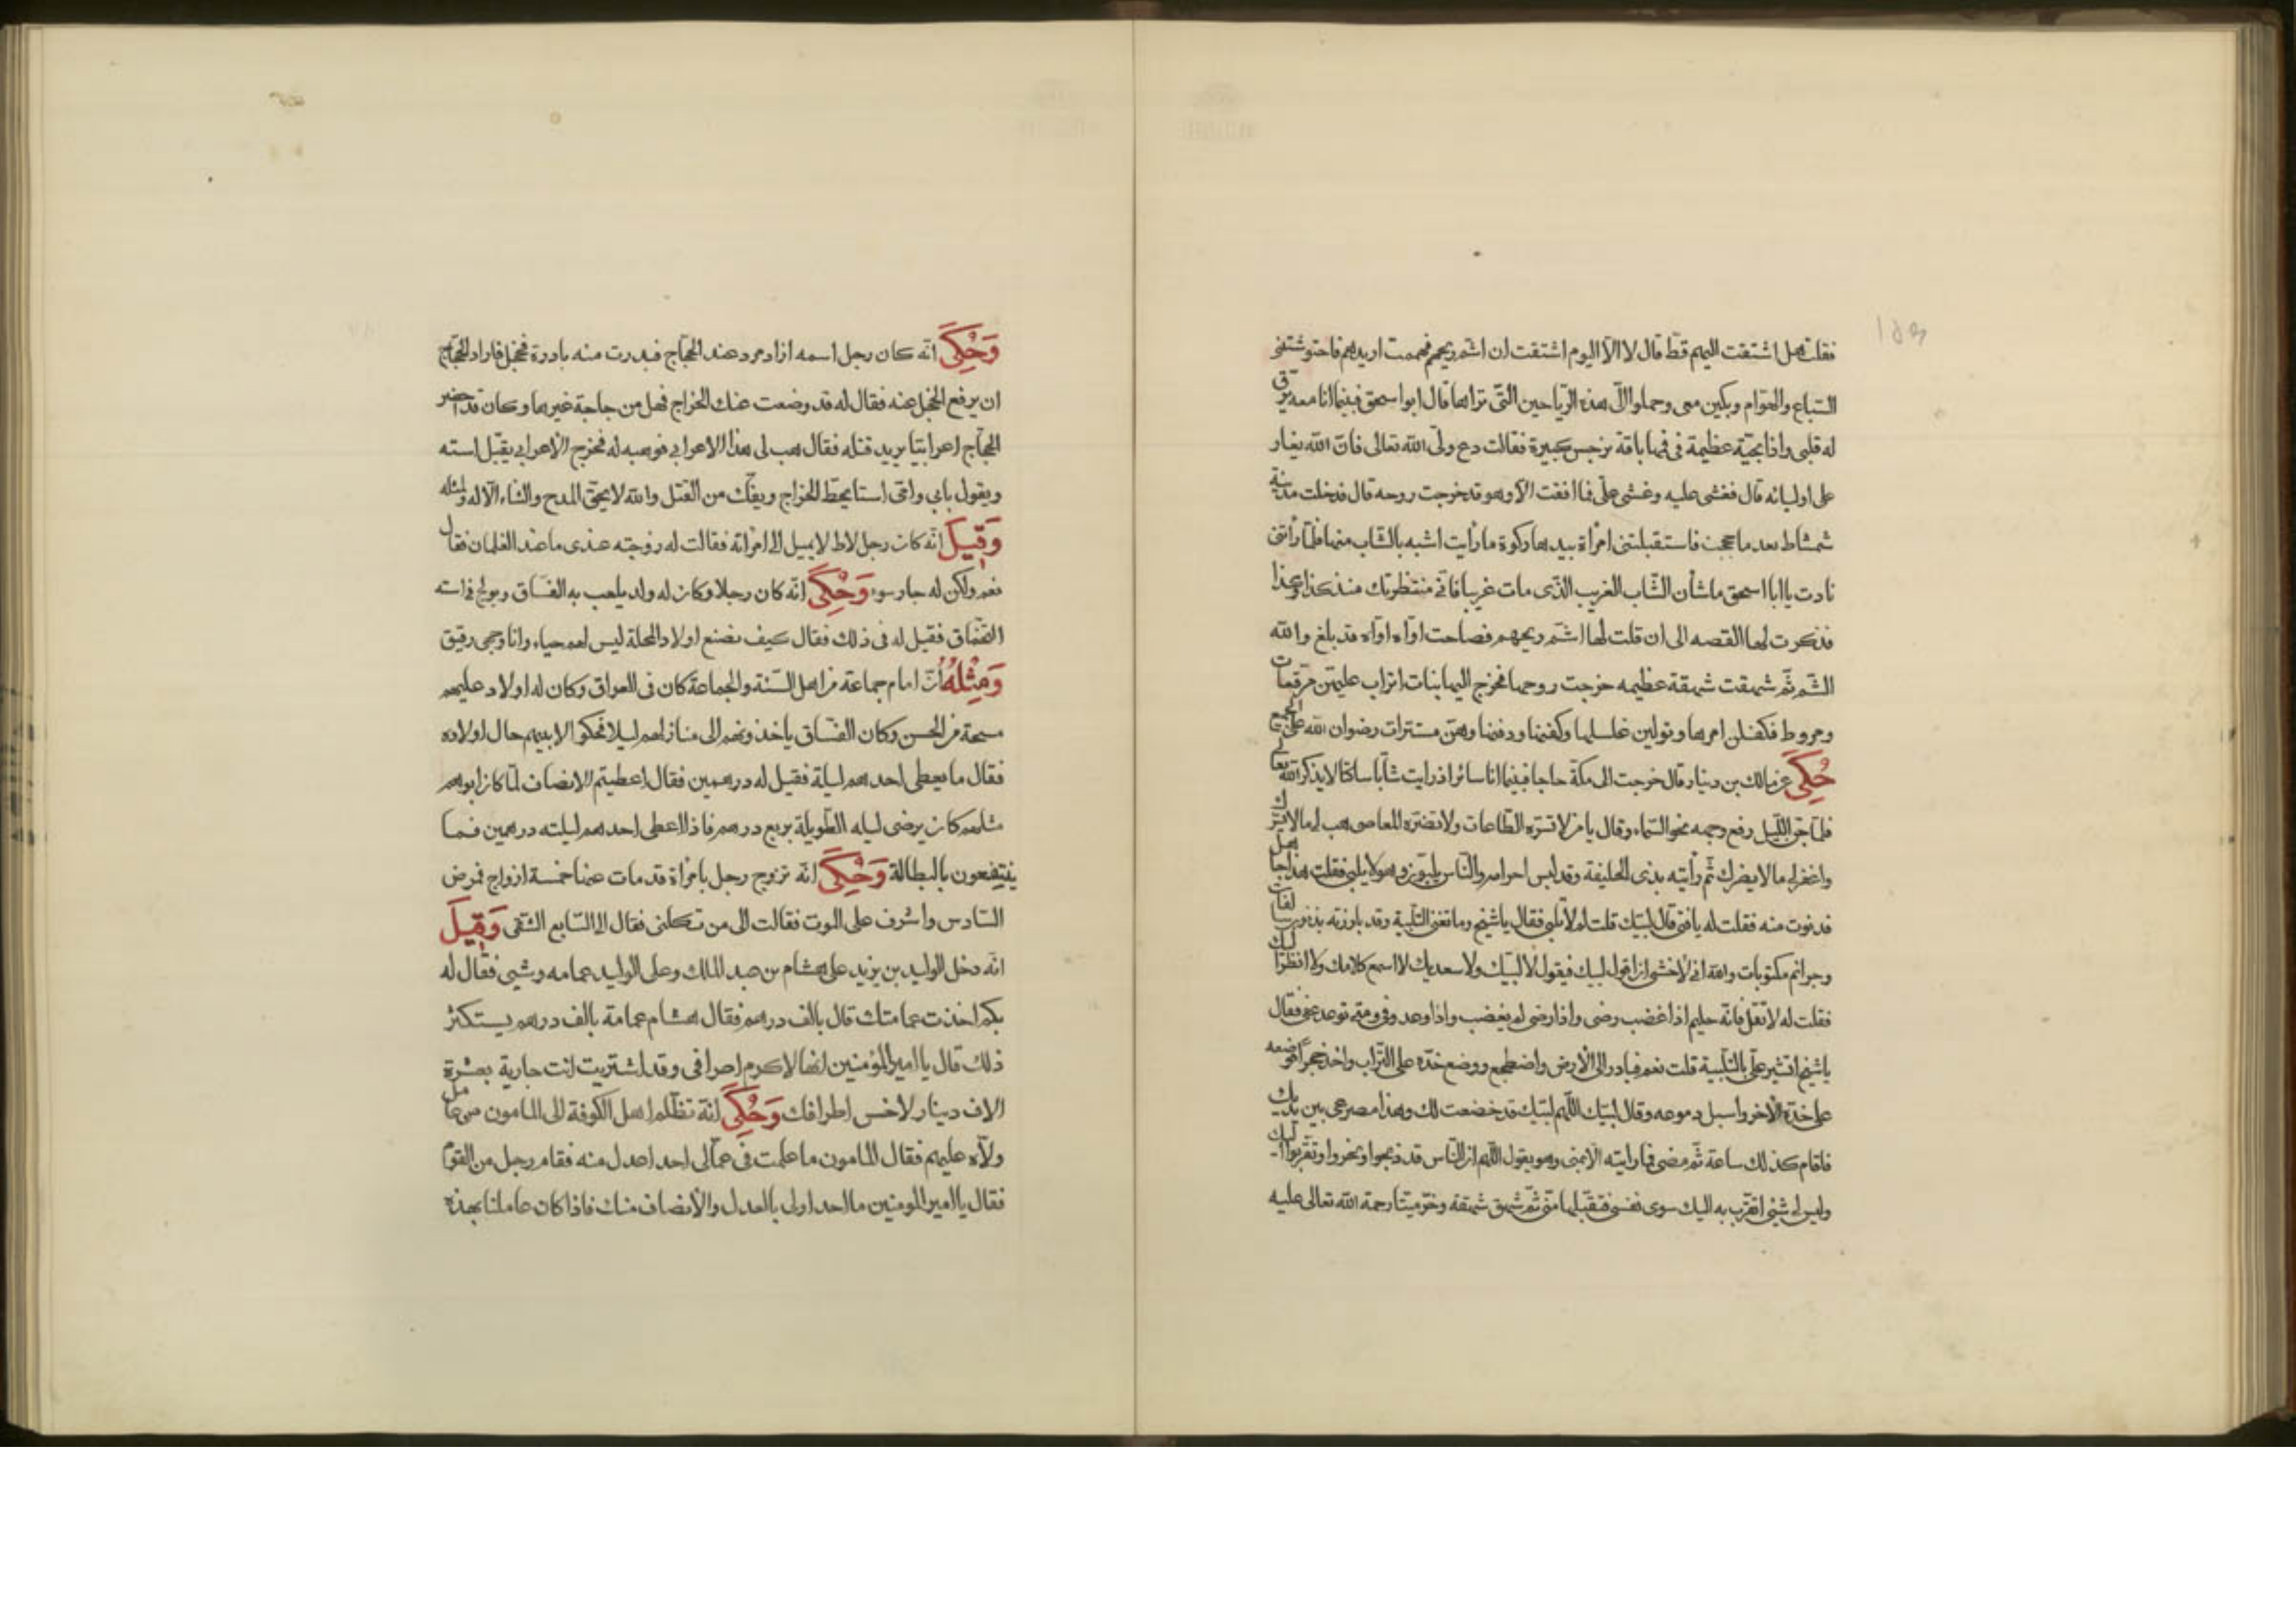 فقلت هل اشتقت اليهم قط قال لا الا اليوم اشتقت ان اشم ريحهم فهممت اريدهم فاحتوشتني
السباع والهوام وبكين معي وحملوا الي هذه الرياحين التي تراها قال ابو اسحق فبينما انا معه يرق
له قلبي واذا بحية عظيمة في فمها باقة نرجس كبيرة فقالت دع ولي الله تعالى فان الله يغار
على اوليائه قال فغشى عليه وغشى علي فما افقت الا وهو قد خرجت روحه قال فدخلت مدينة
شمشاط بعد ما حججت فاستقبلتني امرأة بيدها ركوة ما رأيت اشبه بالشاب منها فلما رأتني
نادت يا ابا اسحق ما شأن الشاب الغريب الذي مات غريبا فاني منتظرتك منذ كذا وكذا
فذكرت لها القصه الى ان قلت لها اشم ريحهم فصاحت اواه اواه قد بلغ والله
الشم ثم شهقت شهقة عظيمه خرجت روحها فخرج اليها بنات اتراب عليهن مرقعات
ومروط فكفلن امرها وتولين غسلها وكفنها ودفنها وهن مستترات رضوان الله على الجميع
حُكِيَ عن مالك بن دينار قال خرجت الى مكة حاجا فبينما انا سائر اذ رايت شابا ساكتا لا يذكر الله تعالى
فلما جن الليل رفع وجهه نحو السماء وقال يا من لا تسره الطاعات ولا تضره المعاصي هب لي ما لا يسرك
واغفر لي ما لا يضرك ثم رأيته بذى الحليفة وقد لبس احرامه والناس يلبون وهو لا يلبي فقلت هذا جاهل
فدنوت منه فقلت له يا فتى قال لبيك قلت له لم لا تلبي فقال يا شيخ وما تغني التلبية وقد بارزته بذنوب سالفات
وجرائم مكتوبات والله اني لاخشى ان اقول لبيك فيقول لا لبيك ولا سعديك لا اسمع كلامك ولا انظر اليك
فقلت له لا تفعل فانه حليم اذا غضب رضى واذا رضى لم يغضب واذا وعد وفى ومتى توعد عفى فقال
يا شيخ اتشير علي بالتلبية قلت نعم فبادر الى الارض واضطجع ووضع خده على التراب واخذ حجرا فوضعه
على خده الاخر واسبل دموعه وقال لبيك اللهم لبيك قد خضعت لك وهذا مصرعي بين يديك
فاقام كذلك ساعة ثم مضى فما رايته الا بمنى وهو يقول اللهم ان الناس قد ذبحوا ونحروا وتقربوا اليك
وليس لي شيئ اتقرب به اليك سوى نفسي فتقبلها مني ثم شهق شهقة وخر ميتا رحمة الله تعالى عليه
وَحُكِيَ انه كان رجل اسمه ازاد مرد عند الحجاج فبدرت منه بادرة فخجل فاراد الحجاج
ان يرفع الخجل عنه فقال له قد وضعت عنك الخراج فهل من حاجة غيرها وكان قد احضر
الحجاج اعرابيا يريد قتله فقال هب لي هذا الاعرابي فوهبه له فخرج الاعرابي يقبل استه
ويقول بابي وامي استا يحط الخراج ويفك من القتل والله لا يحق المدح والثناء الا له ولمثله
وَقِيلَ انه كان رجل لاط لا يميل الى امراته فقالت له زوجته عندى ما عند الغلمان فقال
نعم ولكن له جار سوء وَحُكِيَ انه كان رجلا وكان له ولد يلعب به الفساق ويولج في استه
الفساق فقيل له في ذلك فقال كيف نصنع اولاد المحلة ليس لهم حياء وانا وجهي رقيق
وَمِثْلُهُ أن امام جماعة من اهل السنة والجماعة كان في العراق وكان له اولاد عليهم
مسحة من الحسن وكان الفساق يأخذونهم الى منازلهم ليلا فحكوا لابيهم حال اولاده
فقال ما يعطى احدهم ليلة فقيل له درهمين فقال اعطيتم الانصاف لما كان ابوهم
مثلهم كان يرضى ليله الطويلة بربع درهم فاذا اعطى احدهم ليلته درهمين فما
ينتفعون بالبطالة وَحُكِيَ انه تزوج رجل بامرأة قد مات عنها خمسة ازواج فمرض
السادس واشرف على الموت فقالت الى من تكلني فقال الى السابع الشقي وَقِيلَ
انه دخل الوليد بن يزيد على هشام بن عبد الملك وعلى الوليد عمامه وشي فقال له
بكم اخذت عمامتك قال بالف درهم فقال هشام عمامة بالف درهم يستكثر
ذلك قال يا امير المؤمنين انها لاكرم اطرافى وقد اشتريت انت جارية بعشرة
الاف دينار لاخس اطرافك وَحُكِيَ انه تظلم اهل الكوفة الى المامون من عامل
ولاه عليهم فقال المامون ما علمت في عمالى احد اعدل منه فقام رجل من القوم
فقال يا امير المومنين ما احد اولى بالعدل والانصاف منك فاذا كان عاملنا بهذه